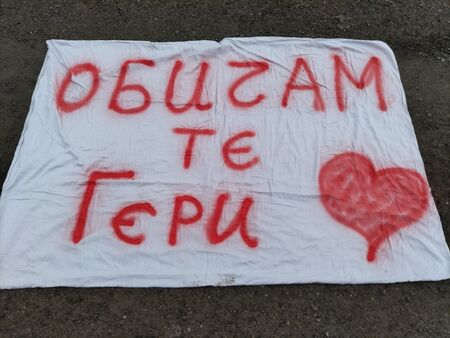 ОБИЧАМ
ТЕ
ГЕРИ